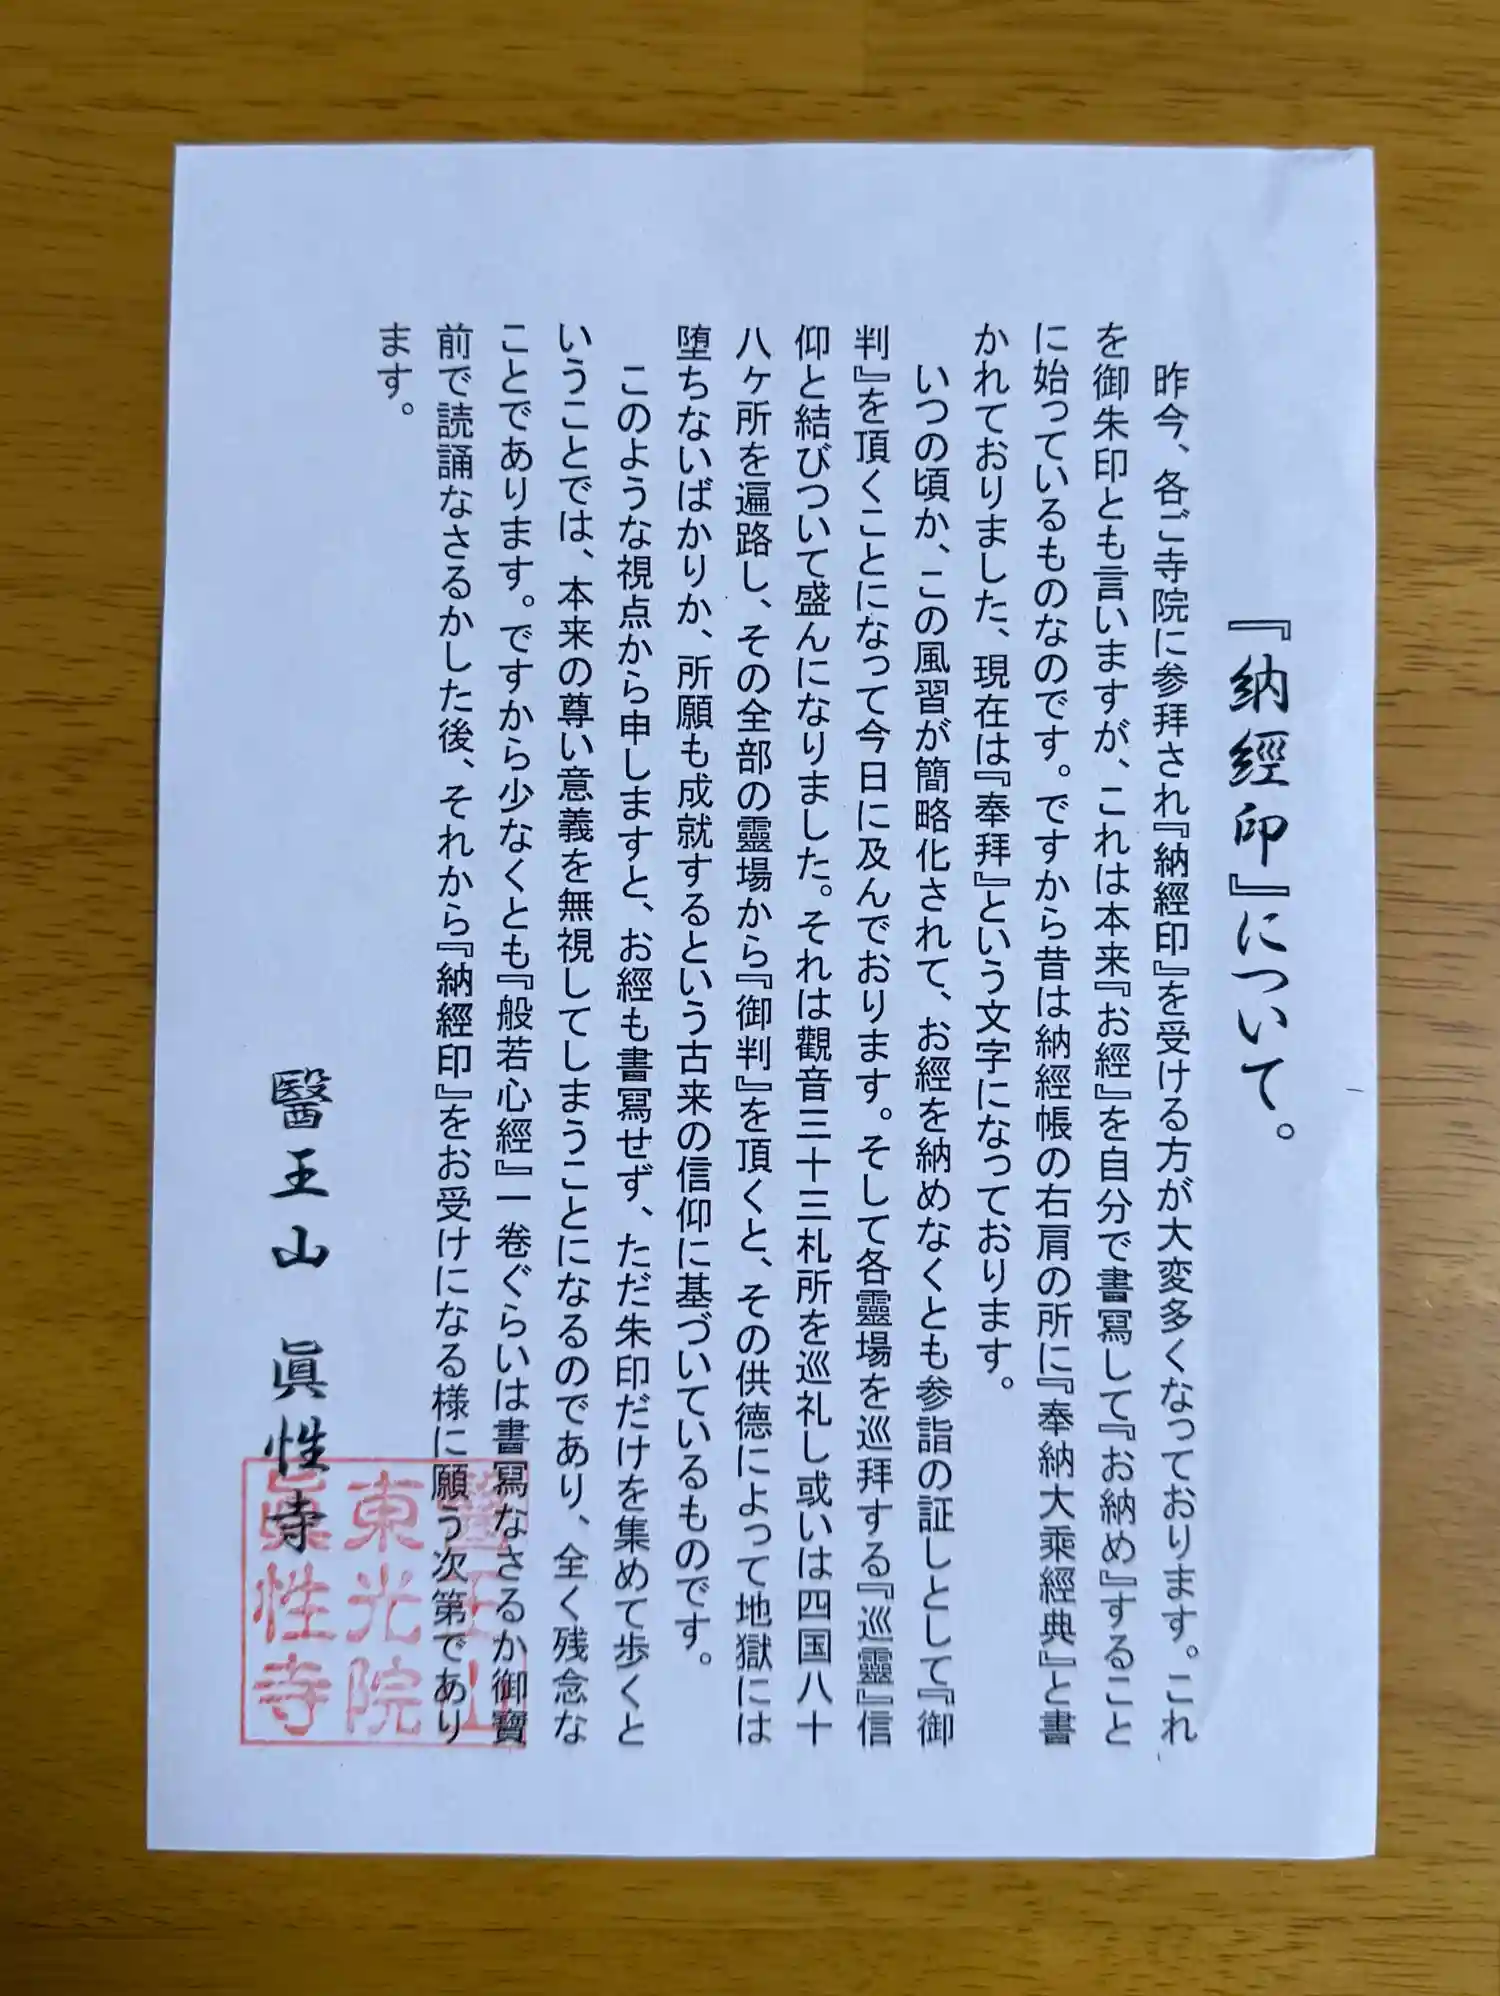 『納經印』について。
昨今、各ご寺院に参拝され『納經印』を受ける方が大変多くなっております。これ
を御朱印とも言いますが、これは本来『お經』を自分で書寫して『お納め』すること
に始っているものなのです。ですから昔は納經帳の右肩の所に『奉納大乘經典』と書
かれておりました、現在は『奉拜』という文字になっております。
いつの頃か、この風習が簡略化されて、お經を納めなくとも参詣の証しとして『御
判』を頂くことになって今日に及んでおります。そして各靈場を巡拜する『巡靈』信
仰と結びついて盛んになりました。それは觀音三十三札所を巡礼し或いは四国八十
八ヶ所を遍路し、その全部の靈場から『御判』を頂くと、その供德によって地獄には
堕ちないばかりか、所願も成就するという古来の信仰に基づいているものです。
このような視点から申しますと、お經も書寫せず、ただ朱印だけを集めて歩くと
いうことでは、本来の尊い意義を無視してしまうことになるのであり、全く残念な
ことであります。ですから少なくとも『般若心經』一卷ぐらいは書寫なさるか御寶
前で読誦なさるかした後、それから『納經印』をお受けになる様に願う次第であり
ます。
醫王山 眞性寺
醫王山
東光院
眞性寺